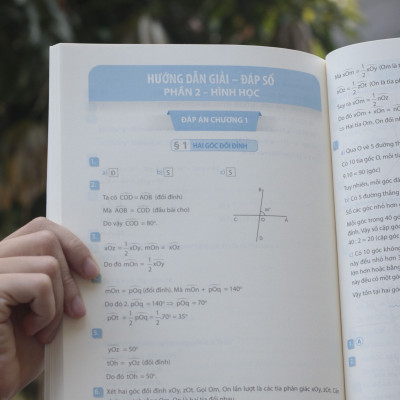 HƯỚNG DẪN GIẢI – ĐÁP SỐ
PHẦN 2 - HÌNH HỌC
ĐÁP ÁN CHƯƠNG 1
§ 1 HAI GÓC ĐỐI ĐỈNH
1.
a) Đ b) S c) S
2.
Ta có COD = AOB (đối đỉnh)
Mà AOB = COD (đầu bài cho)
Do vậy COD = 80°.
3.
xOz = 1/2 xOy. mOn = xOz
Do đó mOn = 1/2 xOy
mOn = pOq (đối đỉnh). Mà mOn + pOq = 140°
Do đó 2. pOq = 140° ⇒ pOq = 70°
pOt = 1/2 pOq = 1/2 .70° = 35°
yOz = 50°
tOh = yOz (đối đỉnh)
Do đó tOh = 50°.
Két hai góc đối đỉnh xOy, zOt. Gọi Om, On lần lượt là các tia phân giác xOy, zOt. Các
Mà xOm = 1/2 xOy (Om là
zOn = 1/2 zOt (On là tia
Suy ra xOm = 1/2 zOn
Do đó xOm + xOn =
⇒ Hai tia Om, On đối
a) Qua O vẽ 5 đường
Có 10 tia gốc O, mỗi
9.10 = 90 (góc)
Tuy nhiên, mỗi góc
b) Có 5 đường thẳng
Số các góc nhỏ hơn
Mỗi góc trong 40
đỉnh. Vậy số cặp góc
40 : 2 = 20 (cặp góc
c) Có 10 góc không
này đều nhỏ hơn
lớn hơn hoặc bằng
này đều có một góc
Vậy tồn tại hai góc